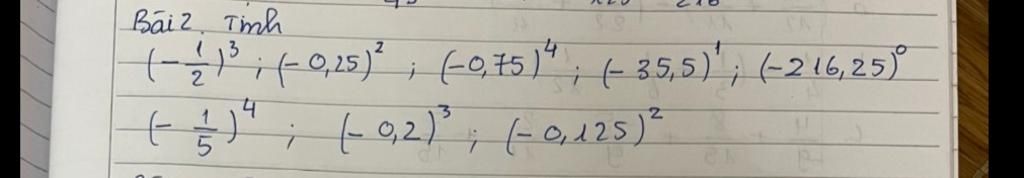 Bāi 2. Tính
(-1/2)³ ; (-0,25)² ; (-0,75)⁴ ; (-35,5)¹ ; (-216,25)⁰
(-1/5)⁴ ; (-0,2)³ ; (-0,125)²